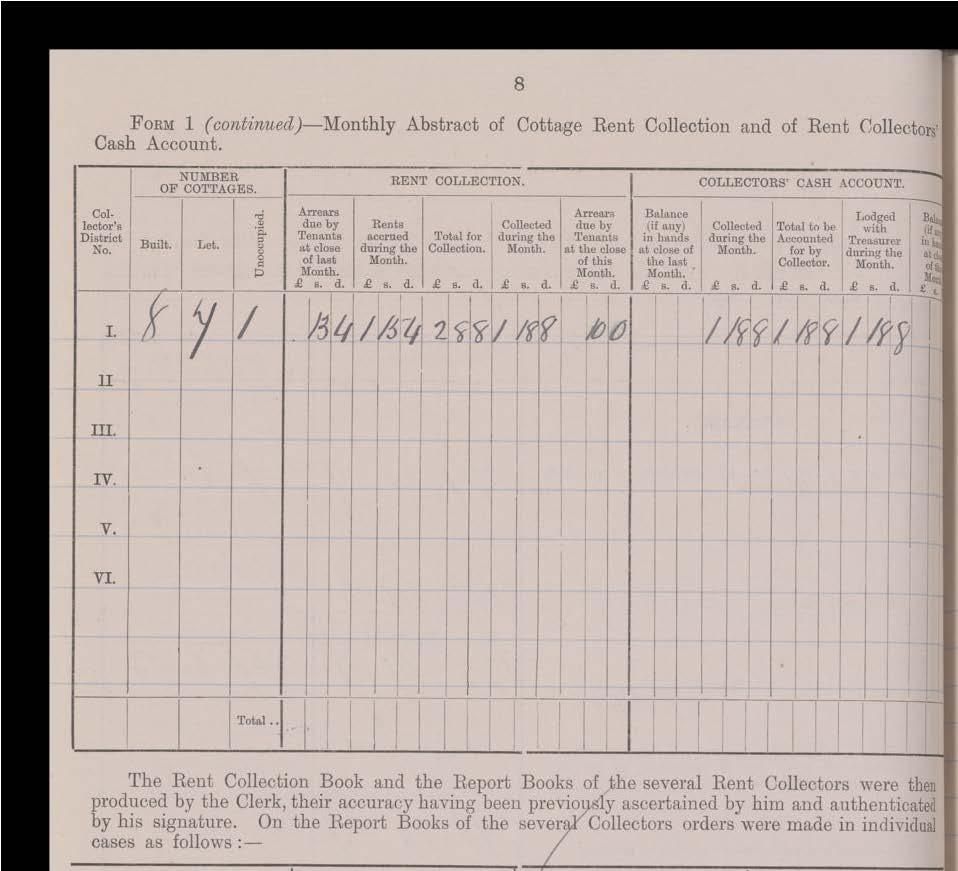 8
FORM 1 (continued)—Monthly Abstract of Cottage Rent Collection and of Rent Collectors'
Cash Account.
Collector's District No.
NUMBER OF COTTAGES.
Built.
Let.
Unoccupied.
RENT COLLECTION.
Arrears due by Tenants at close of last Month.
£ s. d.
Rents accrued during the Month.
£ s. d.
Total for Collection.
£ s. d.
Collected during the Month.
£ s. d.
Arrears due by Tenants at the close of this Month.
£ s. d.
COLLECTORS' CASH ACCOUNT.
Balance (if any) in hands at close of the last Month.
£ s. d.
Collected during the Month.
£ s. d.
Total to be Accounted for by Collector.
£ s. d.
Lodged with Treasurer during the Month.
£ s. d.
£ s.
I. 8 7 1 13 4 1 15 4 2 8 8 1 18 8 10 0 1 18 8 1 18 8 1 18 8
II
III.
IV.
V.
VI.
Total ..
The Rent Collection Book and the Report Books of the several Rent Collectors were then
produced by the Clerk, their accuracy having been previously ascertained by him and authenticated
by his signature. On the Report Books of the several Collectors orders were made in individual
cases as follows :—